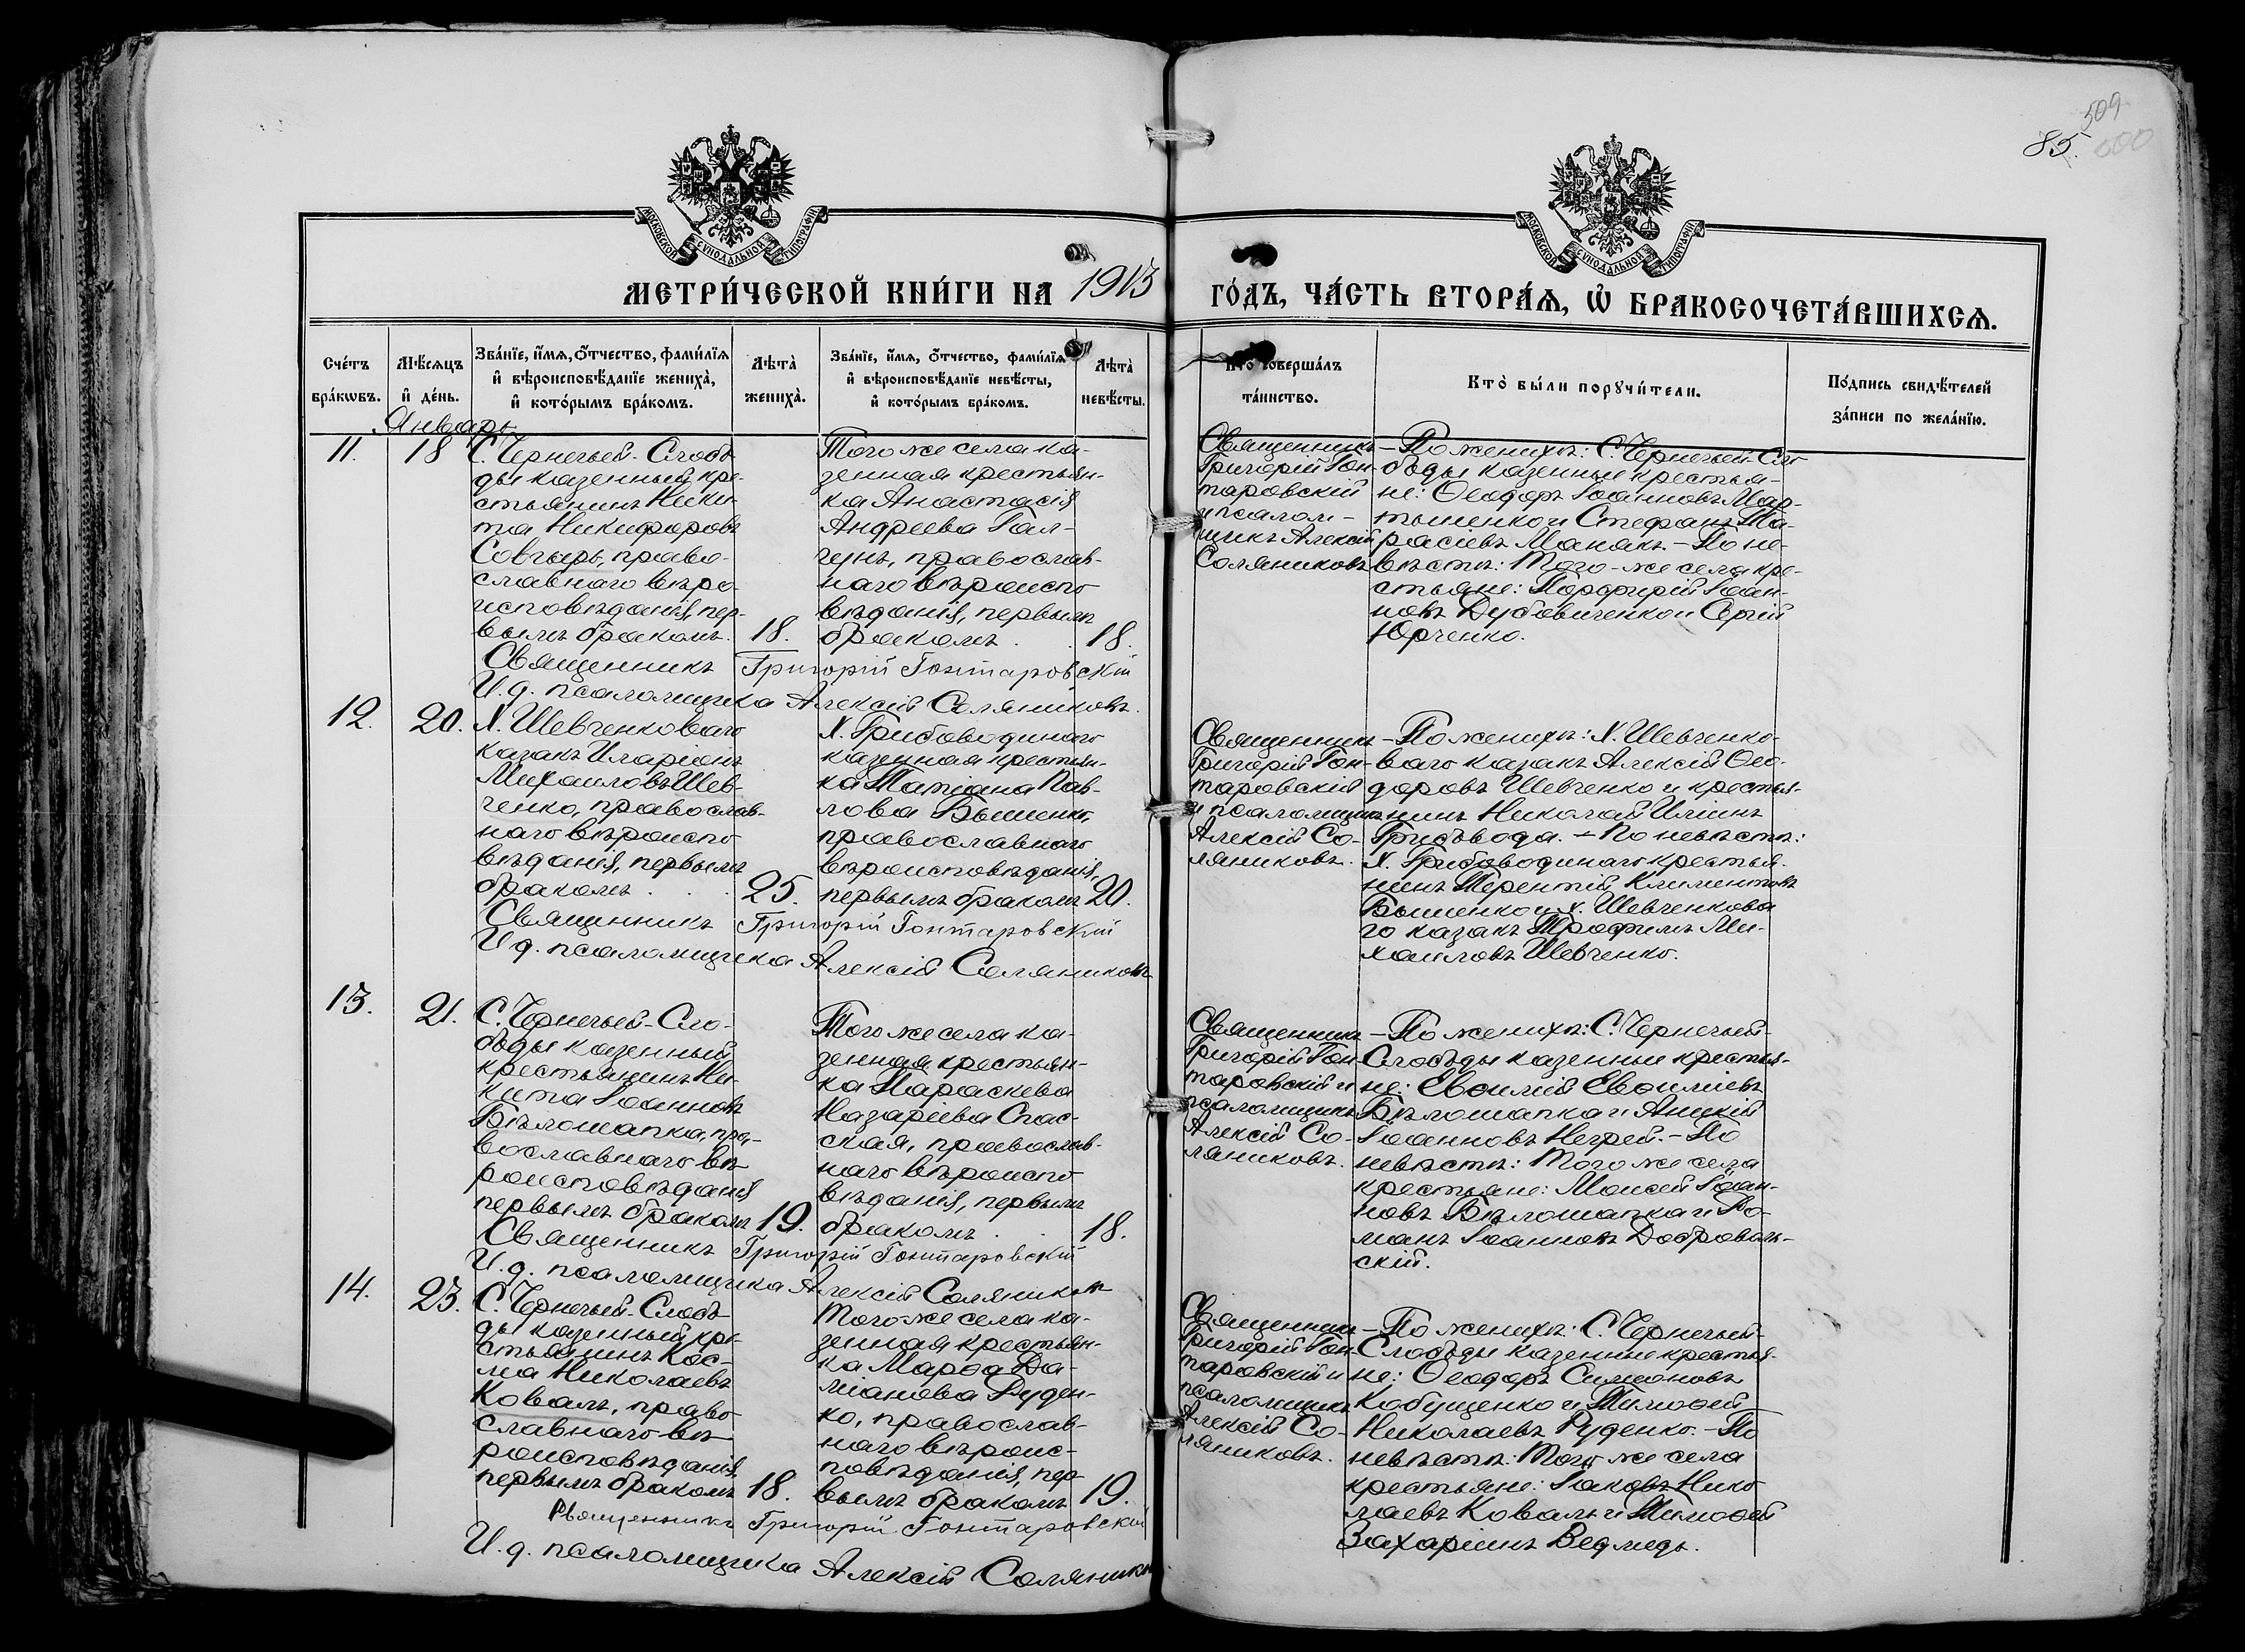 509
85. 600
МОСКОВСКОЙ СѴНОДАЛЬНОЙ ТИПОГРАФІИ
МОСКОВСКОЙ СѴНОДАЛЬНОЙ ТИПОГРАФІИ
МЕТРИ́ЧЕСКОЙ КНИ́ГИ НА 1913 ГО́ДЪ, ЧА́СТЬ ВТОРА́Ѧ, Ѡ҆ БРАКОСОЧЕТА́ВШИХСѦ.
Сче́тъ
бра́кѡвъ.
Мѣ́сѧцъ
и҆ де́нь.
Зва́нїе, и҆́мѧ, ѻ҆́тчество, фами́лїѧ
и҆ вѣроисповѣ́данїе жениха̀,
и҆ кото́рымъ бра́комъ.
Лѣта̀
жениха̀.
Зва́нїе, и҆́мѧ, ѻ҆́тчество, фами́лїѧ
и҆ вѣроисповѣ́данїе невѣ́сты,
и҆ кото́рымъ бра́комъ.
Лѣта̀
невѣ́сты.
Кто̀ соверша́лъ
та́инство.
Кто̀ бы́ли порꙋчи́тели.
По́дпись свидѣ́телей
за́писи по жела́нїю.
Январь
11.
18
С. Чернечьей-Слобо
ды казенный кре-
стьянинъ Ники
та Никифоровъ
Совгирь, право-
славнаго вѣро
исповѣданія, пер-
вымъ бракомъ. 18.
Того же села ка-
зенная крестьян-
ка Анастасія
Андреева Гал-
гунъ, православ-
наго вѣроиспо
вѣданія, первымъ
бракомъ . . 18.
Священникъ
Григорій Гон-
таровскій
и псалом-
щикъ Алексій
Соляниковъ
- По женихѣ: С. Чернечьей-Сло
боды казенные крестья-
не: Ѳеодоръ Іоанновъ Мар-
тыненко и Стефанъ Та-
расіевъ Манакъ. - По не-
вѣстѣ: Того-же села кре-
стьяне: Порфирій Іоан-
новъ Дубовиченко и Сергій
Юрченко.
Священникъ Григорій Гонтаровскій
И.д. псаломщика Алексій Соляниковъ.
12.
20.
Х. Шевченковаго
казакъ Иларіонъ
Михаиловъ Шев-
ченко, православ-
наго вѣроиспо
вѣданія, первымъ
бракомъ . . 25.
Х. Грибоводинаго
казенная крестьян-
ка Татіана Пав-
лова Бышенко,
православнаго
вѣроисповѣданія,
первымъ бракомъ 20.
Священникъ
Григорій Гон-
таровскій
и псаломщикъ
Алексій Со-
ляниковъ.
- По женихѣ: Х. Шевченко-
ваго казакъ Алексій Ѳео-
доровъ Шевченко и крестья-
нинъ Николай Иліинъ
Грибовода. - По невѣстѣ:
Х. Грибоводинаго крестья-
нинъ Терентій Климентовъ
Бышенко и х. Шевченкова
го казакъ Трофимъ Ми-
хаиловъ Шевченко.
Священникъ Григорій Гонтаровскій
И д. псаломщика Алексій Соляниковъ
13.
21.
С. Чернечьей-Сло-
боды казенный
крестьянинъ Ни-
кита Іоанновъ
Бѣлошапка, пра-
вославнаго вѣ
роисповѣданія
первымъ бракомъ 19.
Того же села ка-
зенная крестьян-
ка Параскева
Назаріева Спас-
ская, православ-
наго вѣроиспо
вѣданія, первымъ
бракомъ . . 18.
Священникъ
Григорій Гон-
таровскій и
псаломщикъ
Алексій Со-
ляниковъ.
- По женихѣ: С. Чернечьей-
Слободы казенные крестья-
не: Евѳимій Евѳиміевъ
Бѣлошапка и Аникій
Іоанновъ Негрей. - По
невѣстѣ: Того же села
крестьяне: Моисей Іоан-
новъ Бѣлошапка и Ро-
манъ Іоанновъ Доброволь-
скій.
Священникъ Григорій Гонтаровскій
И.д. псаломщика Алексій Соляниковъ
14.
23.
С. Чернечьей-Слобо
ды казенный кре
стьянинъ Кос-
ма Николаевъ
Коваль, право
славнаго вѣ
роисповѣданія,
первымъ бракомъ 18.
Того же села ка-
зенная крестьян-
ка Марѳа Да-
міанова Руден-
ко, православ-
наго вѣроис-
повѣданія, пер-
вымъ бракомъ 19.
Священникъ
Григорій Гон-
таровскій и
псаломщикъ
Алексій Со-
ляниковъ.
- По женихѣ: С. Чернечьей-
Слободы казенные крестья-
не: Ѳеодоръ Симеоновъ
Кобущенко и Тимоѳей
Николаевъ Руденко. - По
невѣстѣ: Того же села
крестьяне: Іаковъ Нико
лаевъ Коваль и Тимоѳей
Захаріинъ Ведмедь.
Священникъ Григорій Гонтаровскій
И.д. псаломщика Алексій Соляниковъ